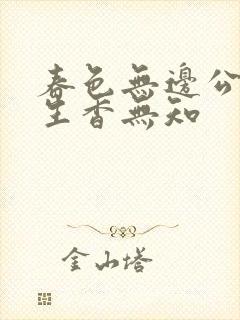 春色無邊公
生香無知
金山塔